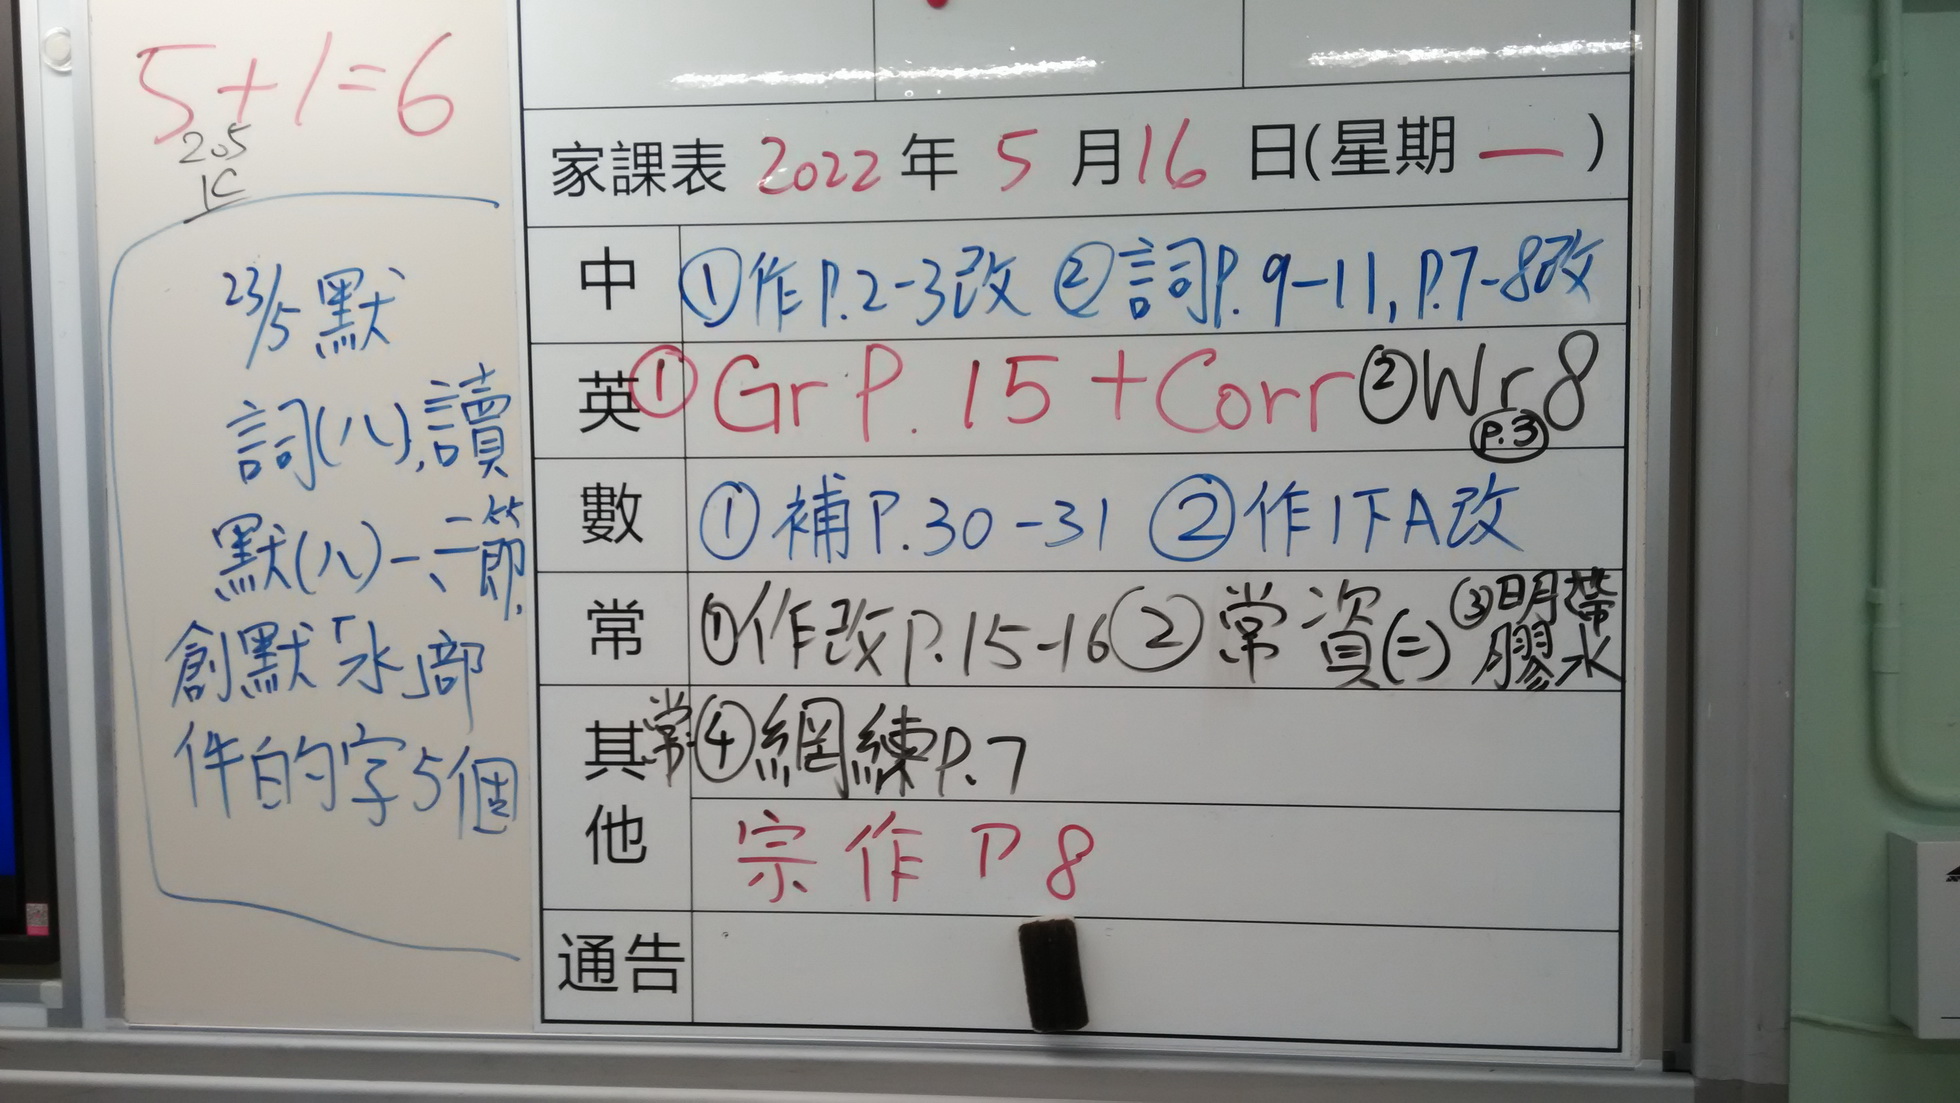 5+1=6
205
1C
23/5 默
詞(八),讀
默(八)一、二節,
創默「氺」部
件的字5個
家課表 2022 年 5 月 16 日(星期 一)
中 ①作P.2-3改 ②詞P.9-11,P.7-8改
英 ①Gr P. 15 + Corr ②Wr 8
P.3
數 ①補P.30-31 ②作1下A改
常 ①作改P.15-16 ②常資(二) ③明帶
膠水
其他 常④網練P.7
宗作 P 8
通告